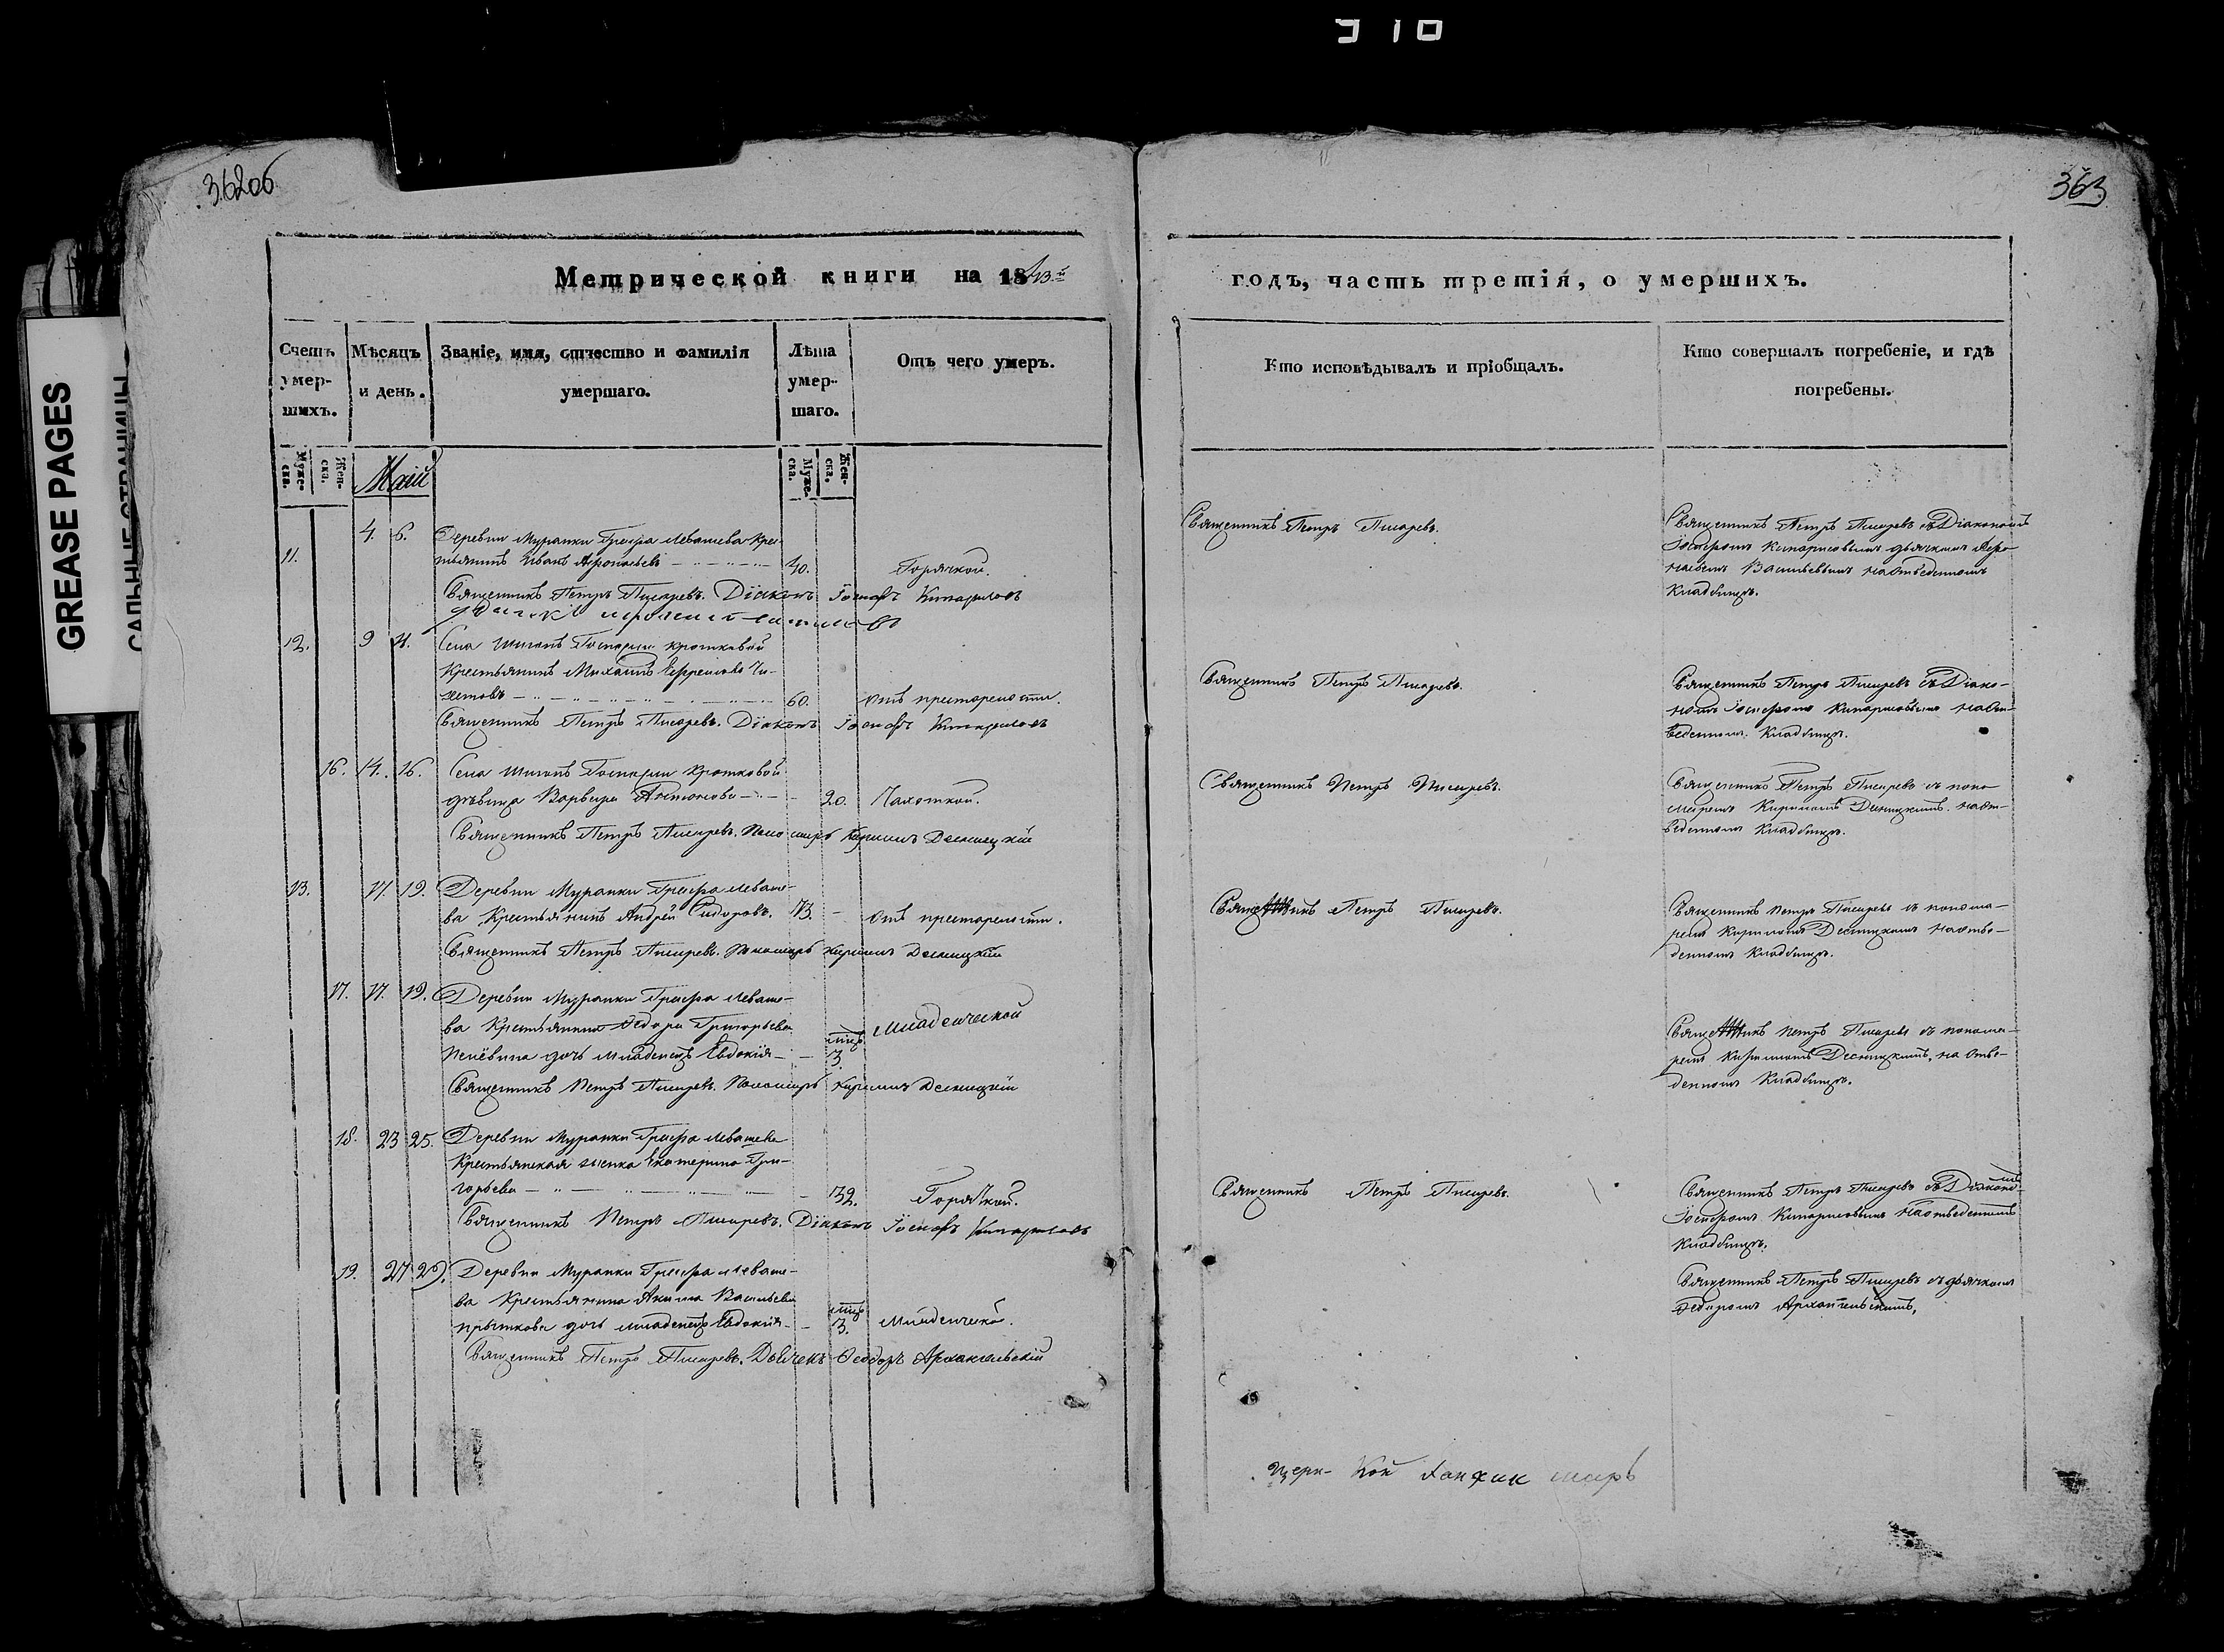 310
36206
363
Метрической книги на 1843
годъ, часть третія, о умершихъ.
Счетъ умер-шихъ.
Мѣсяцъ и день.
Званіе, имя, отчество и фамилія умершаго.
Лѣта умер-шаго.
Отъ чего умеръ.
Кто исповѣдывалъ и пріобщалъ.
Кто совершалъ погребеніе, и гдѣ погребены.
Муже-ска.
Жен-ска.
Муже-ска.
Жен-ска.
Май
4. 6. Деревни Муранки Графа Левашева Кре-
11. стьянинъ Иванъ Афонасьевъ 40. Горячкой.
Священникъ Петръ Писаревъ. Діаконъ Іосифъ Кипарисовъ
Священникъ Петръ Писаревъ.
Священникъ Петръ Писаревъ съ Діакономъ
Іосифомъ Кипарисовымъ дьячкомъ Афо-
насьемъ Васильевымъ на отведенномъ
Кладбищѣ.
12. 9 11. Села Шигонъ Госпожи Кротковой
Крестьянинъ Михаилъ Ефремовъ
60. отъ престарелости.
Священникъ Петръ Писаревъ. Діаконъ Іосифъ Кипарисовъ
Священникъ Петръ Писаревъ.
Священникъ Петръ Писаревъ съ Діако-
номъ Іосифомъ Кипарисовымъ на от-
веденномъ Кладбищѣ.
16. 14. 16. Села Шигонъ Госпожи Кротковой
дѣвица Варвара Антонова 20. Чахоткой.
Священникъ Петръ Писаревъ. Пономарь Кириллъ Десницкій
Священникъ Петръ Писаревъ.
Священникъ Петръ Писаревъ съ поно
маремъ Кириломъ Десницкимъ на от-
веденномъ Кладбищѣ.
13. 17. 19. Деревни Муранки Графа Леваше-
ва Крестьянинъ Андрей Сидоровъ. 73. отъ престарелости.
Священникъ Петръ Писаревъ. Пономарь Кириллъ Десницкій
Священникъ Петръ Писаревъ.
Священникъ Петръ Писаревъ съ понома-
ремъ Кириломъ Десницкимъ на отве-
денномъ Кладбищѣ.
17. 17. 19. Деревни Муранки Графа Леваше-
ва Крестьянина Ѳедора Григорьева
дочь младенецъ Евдокія 3. младенческой
Священникъ Петръ Писаревъ. Пономарь Кириллъ Десницкій
Священникъ Петръ Писаревъ съ понома-
ремъ Кириломъ Десницкимъ, на отве-
денномъ Кладбищѣ.
18. 23 25. Деревни Муранки Графа Левашева
Крестьянская женка Екатерина Гри-
горьева 32. Горячкой.
Священникъ Петръ Писаревъ. Діаконъ Іосифъ Кипарисовъ
Священникъ Петръ Писаревъ.
Священникъ Петръ Писаревъ съ Діакономъ
Іосифомъ Кипарисовымъ на отведенномъ
Кладбищѣ.
19. 27 29. Деревни Муранки Графа Леваше-
ва Крестьянина Акима Васильева
Прыткова дочь младенецъ Евдокія 3. младенческой.
Священникъ Петръ Писаревъ. Дьячекъ Ѳеодоръ Архангельскій
Священникъ Петръ Писаревъ съ дьячкомъ
Ѳедоромъ Архангельскимъ,
GREASE PAGES
САЛЬНЫЕ СТРАНИЦЫ